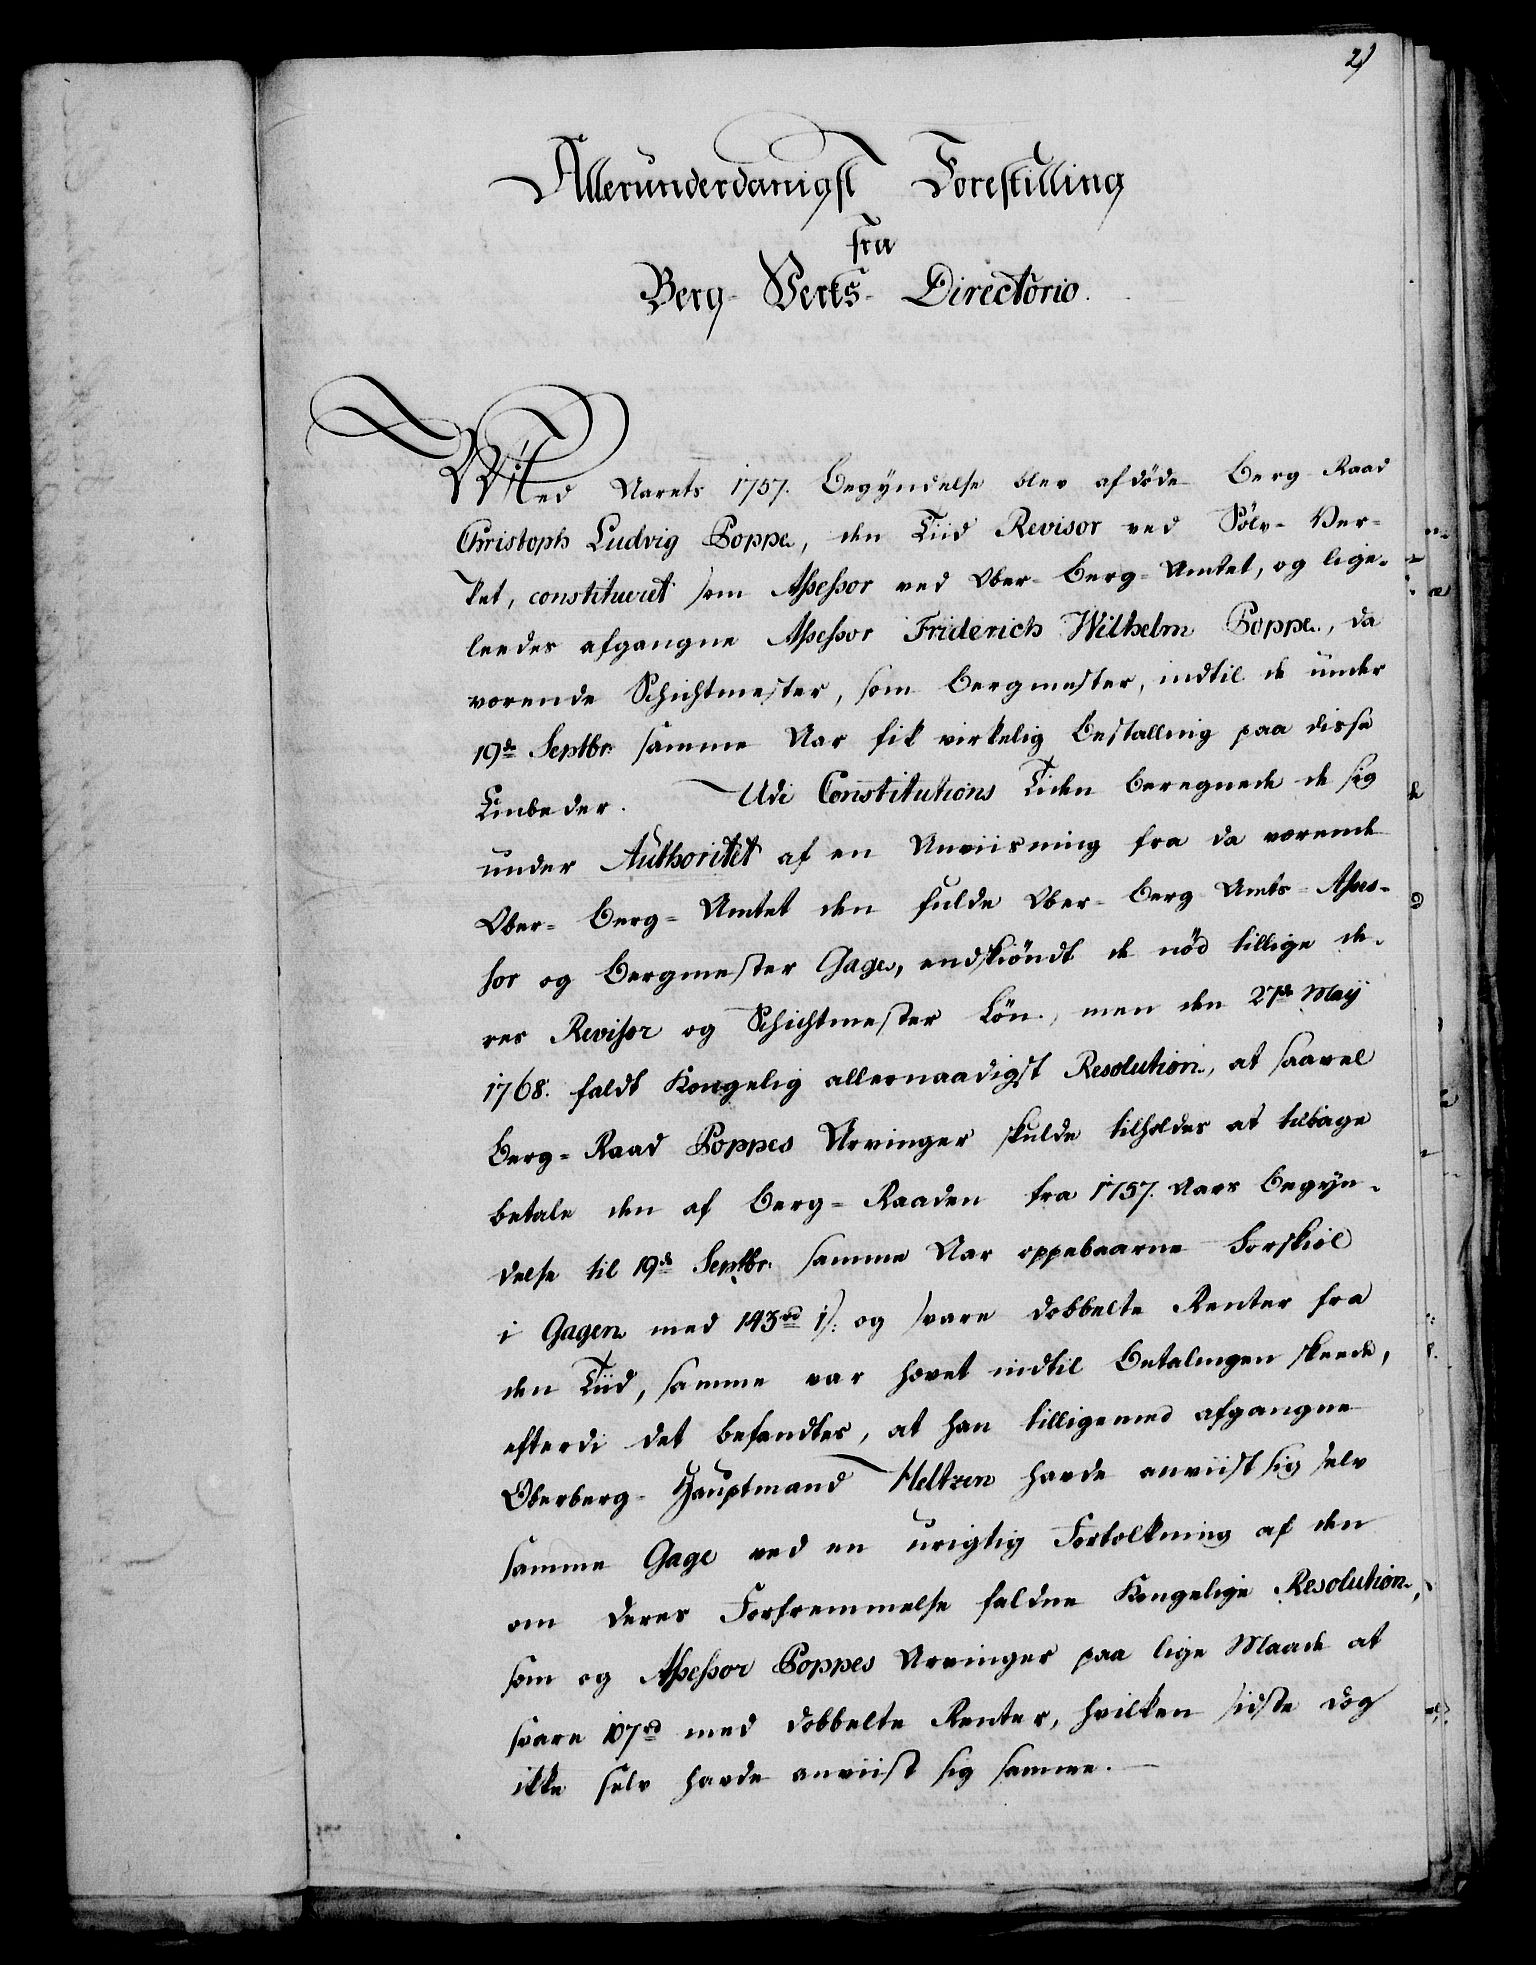 2)
Allerunderdanigst Forestilling
fra
Berg- Verks- Directorio.
Med Aarets 1757. Begyndelse blev afdöde Berg Raad
Christoph Ludvig Poppe, den Tiid Revisor ved Sölv-Ver-
ket, constitueret som Assessor ved Ober-Berg-Amtet, og lige-
leedes afgangne Assessor Friderich Wilhelm Poppe, da
værende Schichtmester, som Bergmester, indtil de under
19de Septbr: samme Aar fik virkelig Bestalling paa disse
Embeder. Udi Constitutions Tiden beregnede de sig
under Authoritet af en Anviisning fra da værende
Ober-Berg-Amtet den fulde Ober-Berg Amts-Asses-
sor og Bergmester Gage, endskiöndt de nöd tillige de-
res Revisor og Schichtmester Lön, men den 27de Maÿ
1768. faldt Kongelig allernaadigst Resolution, at saavel
Berg-Raad Poppes Arvinger skulde tilholdes at tilbage
betale den af Berg-Raaden fra 1757. Aars Begyn-
delse til 19de Septbr: samme Aar oppebaarne Forskiel
i Gagen med 143rd 1s: og svare dobbelte Renter fra
den Tiid, samme var hævet indtil Betalingen skeede,
efterdi det befandtes, at han tilligemed afgangne
Oberberg-Hauptmand Heltzen havde anviist sig selv
samme Gage ved en urigtig Fortolkning af den
om deres Forfremmelse faldne Kongelige Resolution,
som og Assessor Poppes Arvinger paa lige Maade at
svare 107rd med dobbelte Renter, hvilken sidste dog
ikke selv havde anviist sig samme.